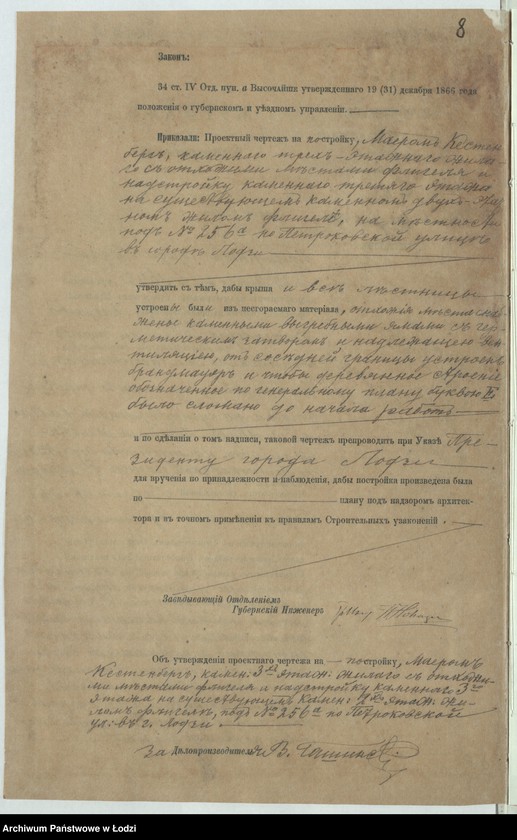 8
Законъ:
34 ст. IV Отд. пун. а Высочайше утвержденнаго 19 (31) декабря 1866 года
положенія о губернскомъ и уѣздномъ управленіи.
Приказали: Проектный чертежъ на постройку, Маеромъ Кестен-
бергъ, каменнаго трехъ-этажнаго жила-
го съ отхожими мѣстами флигеля и
надстройку каменнаго третьяго этажа
на существующемъ каменномъ двухъ-этаж-
номъ жиломъ флигелѣ, на мѣстности
подъ № 256а по Петроковской улицѣ
въ городѣ Лодзи
утвердить съ тѣмъ, дабы крыша и всѣ лѣстницы
устроены были изъ несгораемаго матеріала, отхожія мѣста снаб-
жены каменными выгребными ямами съ гер-
метическимъ затворомъ и надлежащею вен-
тиляціею, отъ сосѣдней границы устроенъ
брандмауэръ и чтобы деревянное строеніе
обозначенное по генеральному плану буквою
было сломано до начала работъ
а по сдѣланіи о томъ надписи, таковой чертежъ препроводить при Указѣ Пре-
зиденту города Лодзи
для врученія по принадлежности и наблюденія, дабы постройка произведена была
по плану подъ надзоромъ архитек-
тора и въ точномъ примѣненіи къ правиламъ Строительныхъ узаконеній.
Завѣдывающій Отдѣленіемъ
Губернскій Инженеръ
Объ утвержденіи проектнаго чертежа на — постройку, Маеромъ
Кестенбергъ, камен: 3хъ этаж: жилаго съ отхожи-
ми мѣстами флигеля и надстройку каменнаго 3го
этажа на существующемъ камен: 2хъ этаж: жи-
ломъ флигелѣ, подъ № 256а по Петроковской
ул: въ г. Лодзи
За Дѣлопроизводителя
Archiwum Państwowe w Łodzi